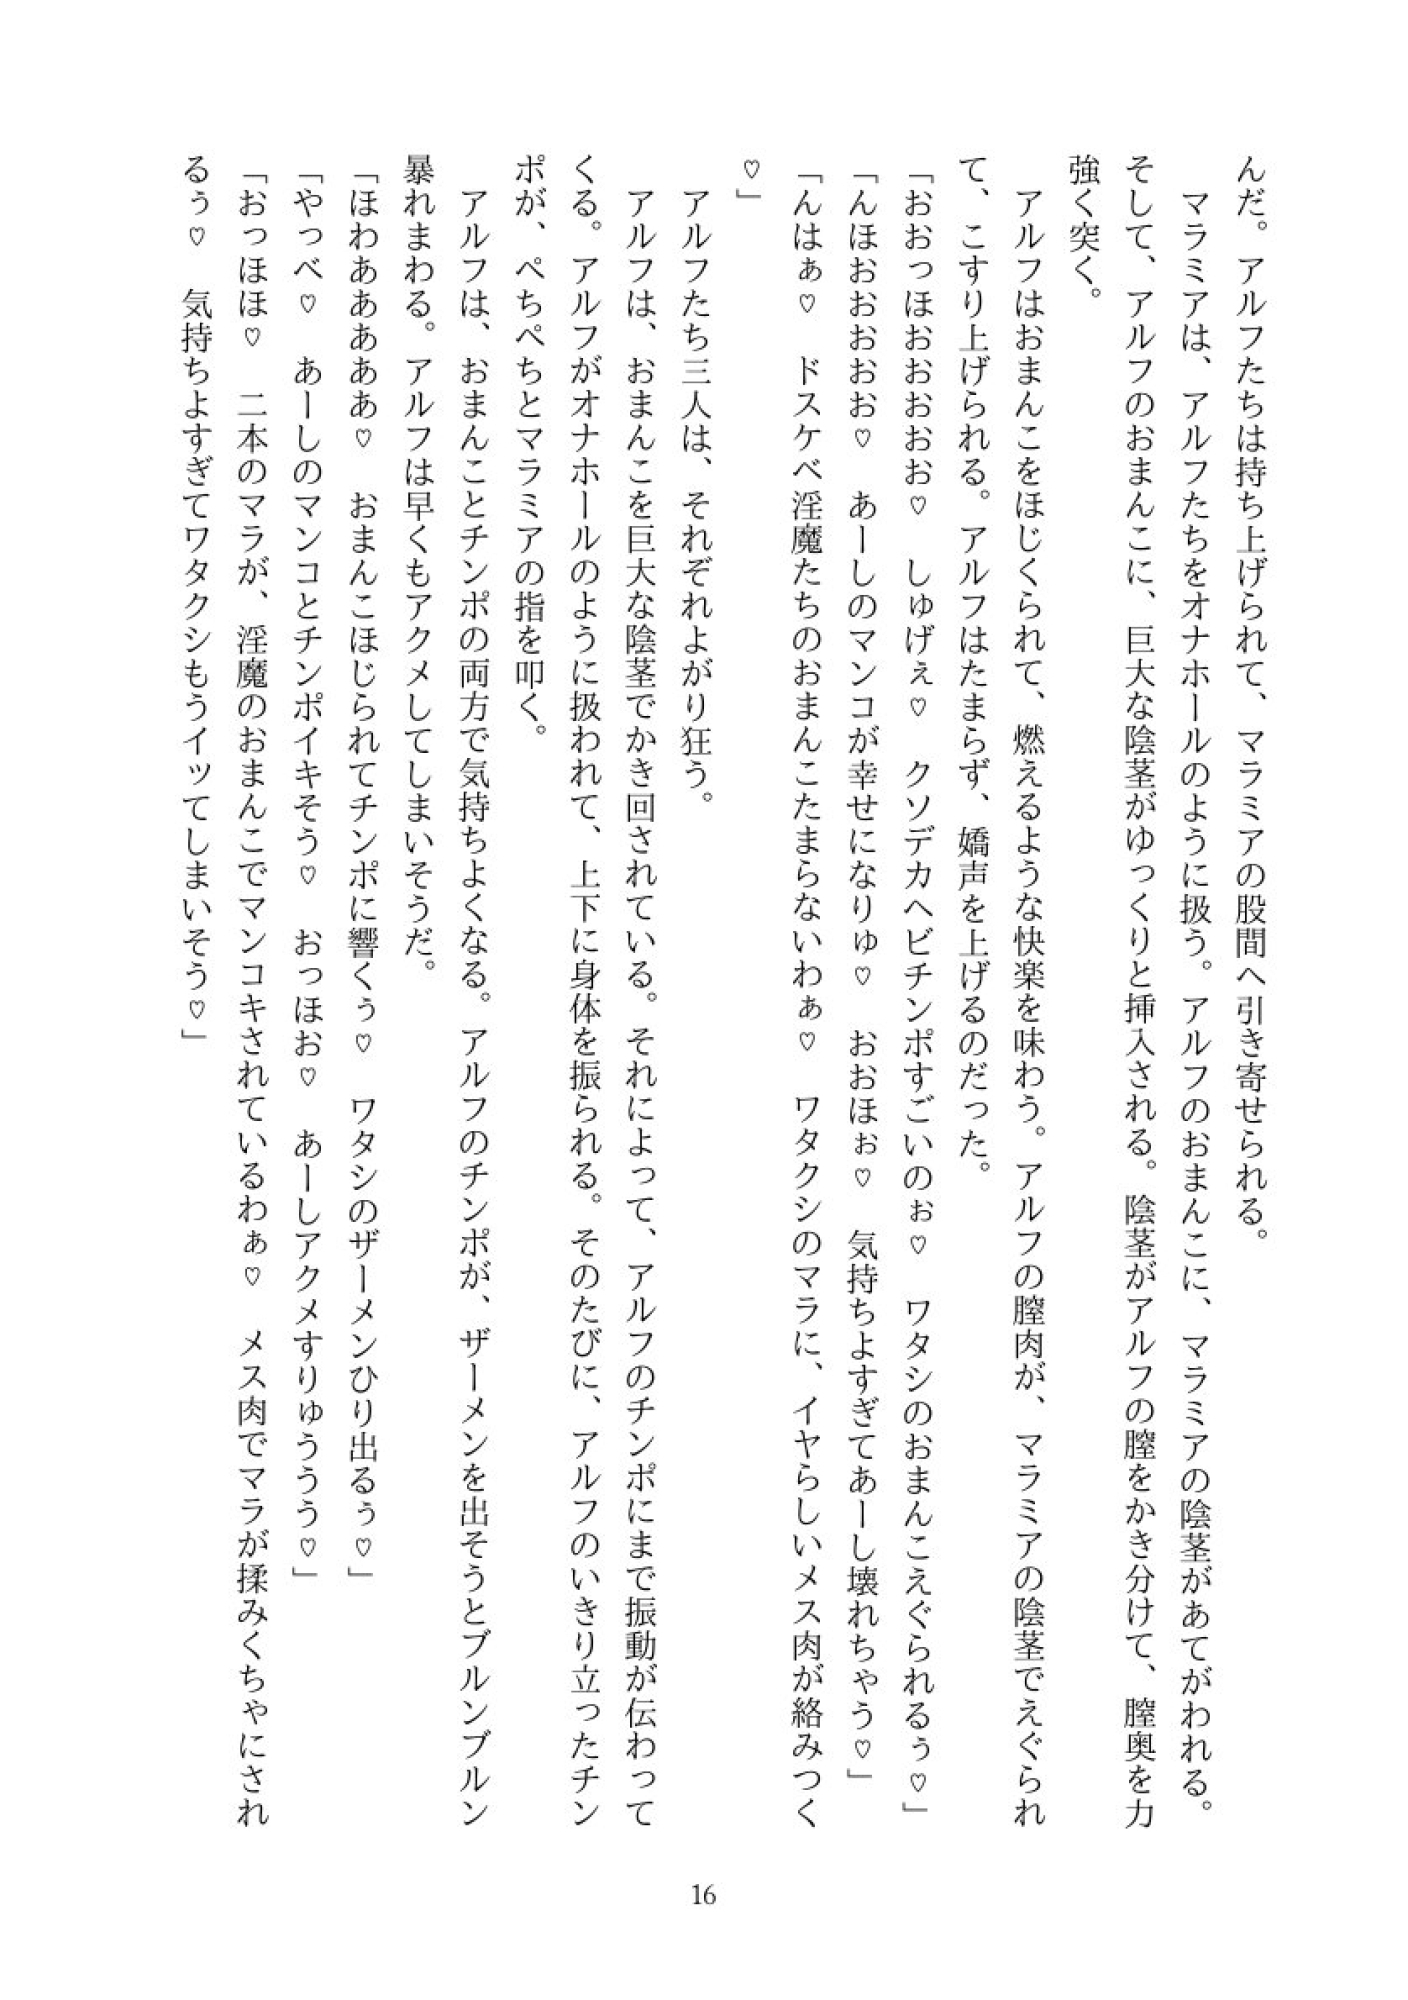 んだ。アルフたちは持ち上げられて、マラミアの股間へ引き寄せられる。
　マラミアは、アルフたちをオナホールのように扱う。アルフのおまんこに、マラミアの陰茎があてがわれる。
そして、アルフのおまんこに、巨大な陰茎がゆっくりと挿入される。陰茎がアルフの膣をかき分けて、膣奥を力
強く突く。
　アルフはおまんこをほじくられて、燃えるような快楽を味わう。アルフの膣肉が、マラミアの陰茎でえぐられ
て、こすり上げられる。アルフはたまらず、嬌声を上げるのだった。
「おおっほおおおおお♡　しゅげぇ♡　クソデカヘビチンポすごいのぉ♡　ワタシのおまんこえぐられるぅ♡」
「んほおおおおお♡　あーしのマンコが幸せになりゅ♡　おおほぉ♡　気持ちよすぎてあーし壊れちゃう♡」
「んはぁ♡　ドスケベ淫魔たちのおまんこたまらないわぁ♡　ワタクシのマラに、イヤらしいメス肉が絡みつく
♡」
　アルフたち三人は、それぞれよがり狂う。
　アルフは、おまんこを巨大な陰茎でかき回されている。それによって、アルフのチンポにまで振動が伝わって
くる。アルフがオナホールのように扱われて、上下に身体を振られる。そのたびに、アルフのいきり立ったチン
ポが、ぺちぺちとマラミアの指を叩く。
　アルフは、おまんことチンポの両方で気持ちよくなる。アルフのチンポが、ザーメンを出そうとブルンブルン
暴れまわる。アルフは早くもアクメしてしまいそうだ。
「ほわあああああ♡　おまんこほじられてチンポに響くぅ♡　ワタシのザーメンひり出るぅ♡」
「やっべ♡　あーしのマンコとチンポイキそう♡　おっほお♡　あーしアクメすりゅううう♡」
「おっほほ♡　二本のマラが、淫魔のおまんこでマンコキされているわぁ♡　メス肉でマラが揉みくちゃにされ
るぅ♡　気持ちよすぎてワタクシもうイッてしまいそう♡」
16